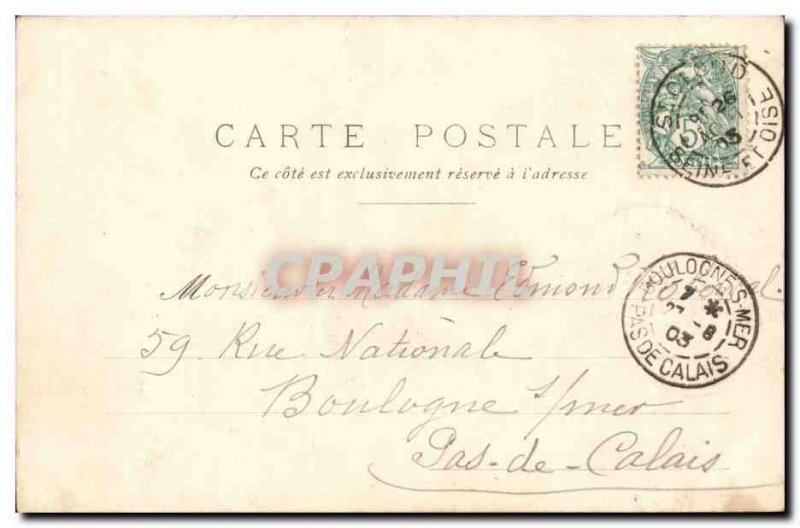 CARTE POSTALE
Ce côté est exclusivement réservé à l'adresse
ST CLOUD
26
03
SEINE ET OISE
5
CPAPHIL
Monsieur et Madame Edmond
59 Rue Nationale
Boulogne s/mer
Pas-de-Calais
BOULOGNE-S-MER
7 *
27 -8
03
PAS DE CALAIS